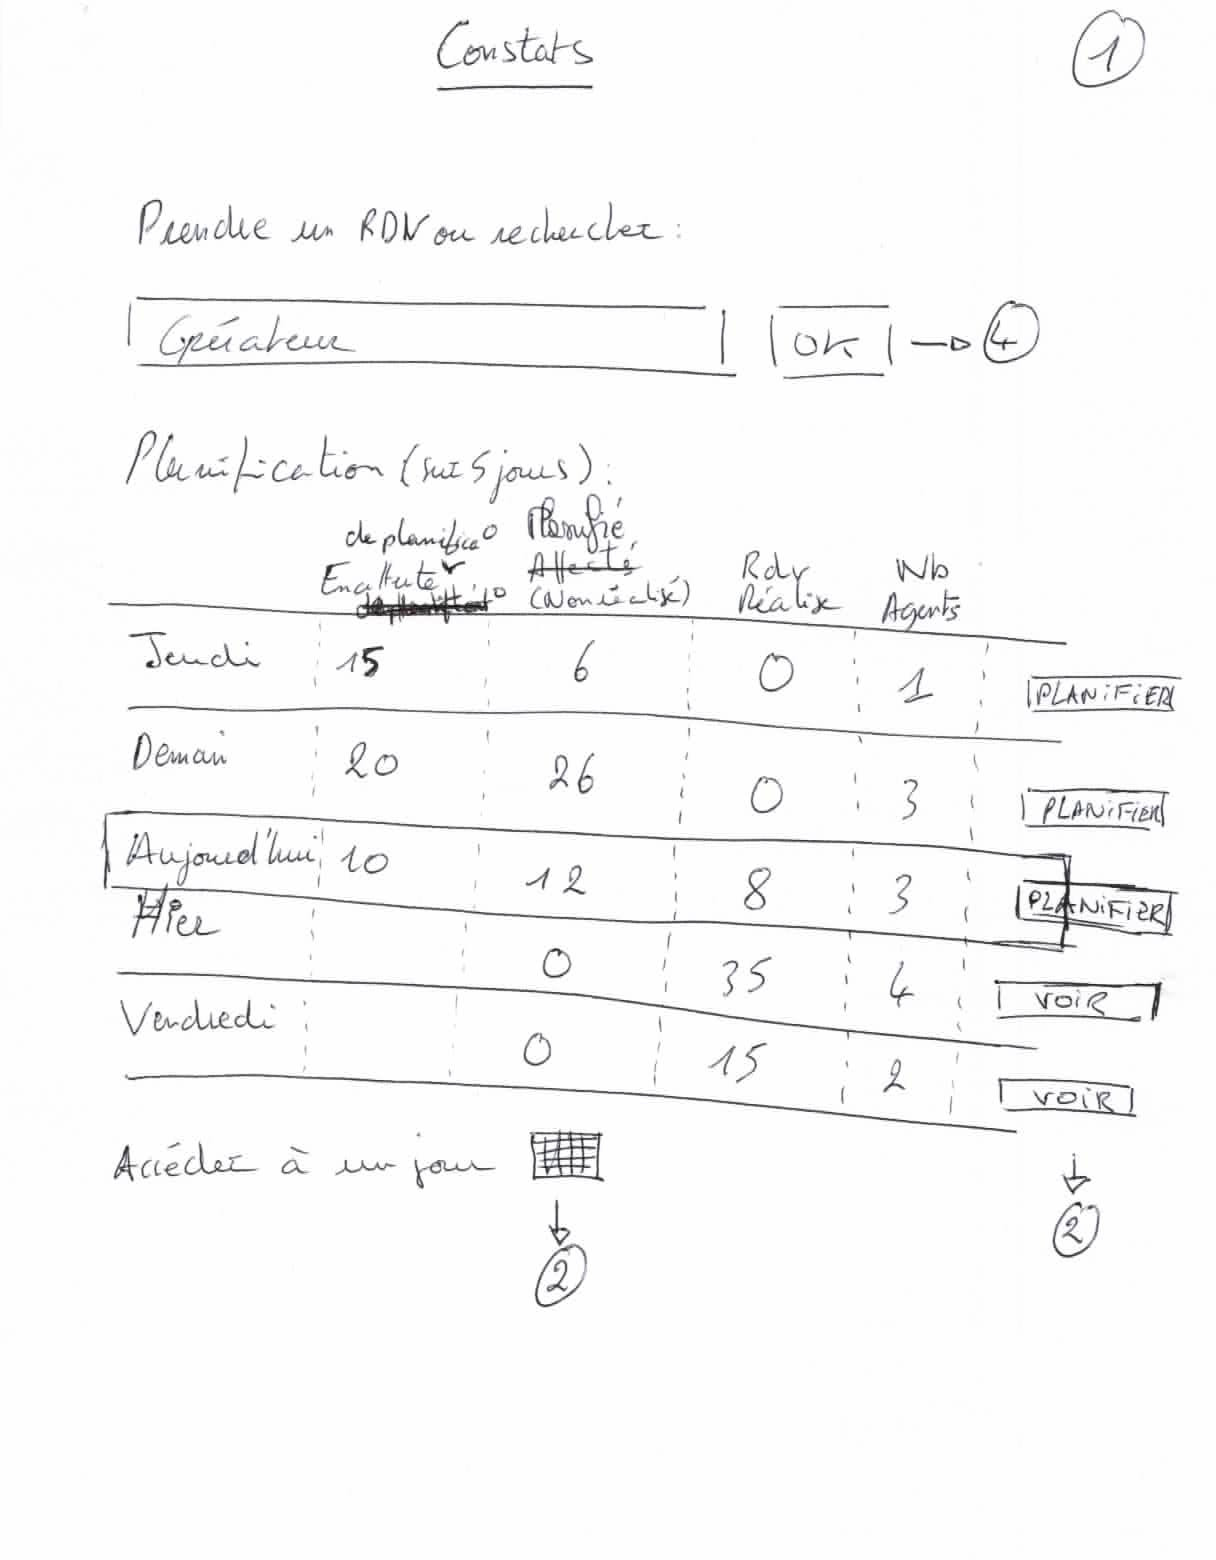 Constats
1
Prendre un RDV ou rechercher :
Opérateur
OK → 4
Planification (sur 5 jours) :
de planificao Planifié
En attente Affecté Rdv Nb
(Non réalisé) Réalisé Agents
Jeudi 15 6 0 1 PLANIFIER
Demain 20 26 0 3 PLANIFIER
Aujourd'hui 10 12 8 3 PLANIFIER
Hier 0 35 4 VOIR
Vendredi 0 15 2 VOIR
Accéder à un jour
2
2